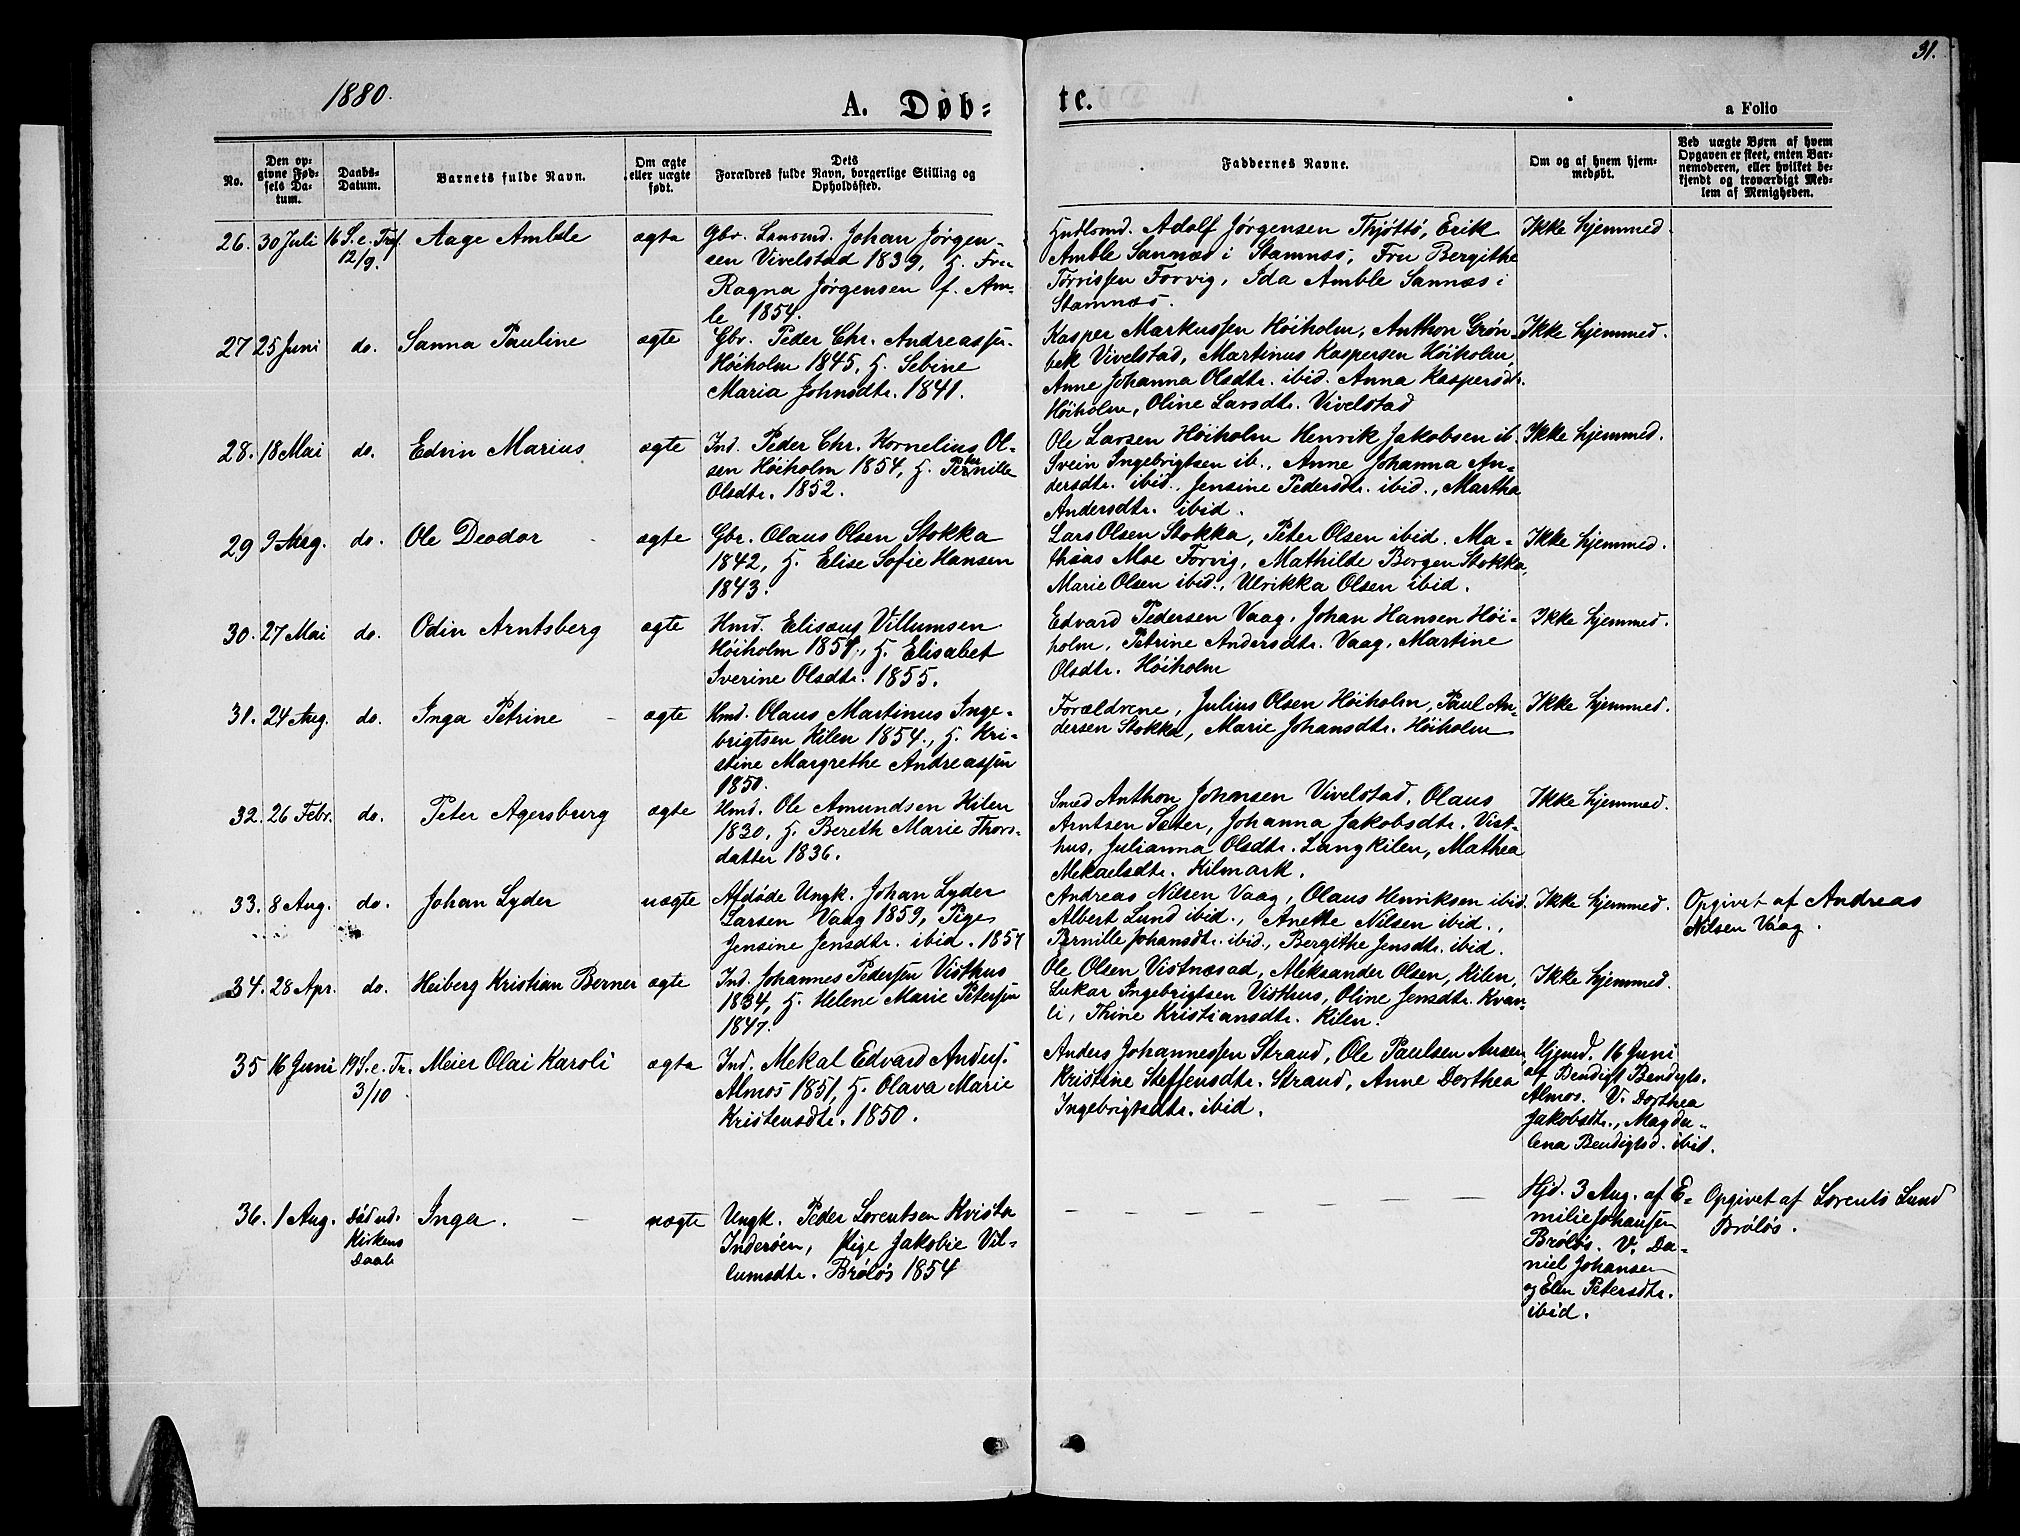 31.
1880.
A. Døb=
te.
a Folio
No.
Den op=
givne Fød=
sels Da=
tum.
Daabs=
Datum.
Barnets fulde Navn.
Om ægte
eller uægte
født.
Dets
Forældres fulde Navn, borgerlige Stilling og
Opholdssted.
Faddernes Navne.
Om og af hvem hjem=
medøbt.
Ved uægte Børn af hvem
Opgaven er skeet, enten Bar=
nemoderen, eller hvilket be=
kjendt og troværdigt Med=
lem af Menigheden.
26. 30 Juli
16 S. e. Tref.
12/9.
Aage Amble
ægte
Gbr. Lensmd. Johan Jørgen-
sen Vivelstad 1839, H. Fru
Ragna Jørgensen f. Am-
le 1854.
Hndlsmd. Adolf Jørgensen Thjøttø, Erik
Amble Sannæs i Stamnæs, Fru Bergithe
Torrissen Forvig, Ida Amble Sannæs i
Stamnæs.
Ikke hjemmed.
27 25 Juni
do.
Sanna Pauline
ægte
Gbr. Peder Chr. Andreassen
Høiholm 1845, H. Sebine
Maria Johnsdtr. 1841.
Kasper Markussen Høiholm, Anthon Grøn-
bek Vivelstad, Martinus Kaspersen Høiholm
Anne Johanna Olsdtr. ibid. Anna Kaspersdtr.
Høiholm, Oline Larsdtr. Vivelstad
Ikke hjemmed.
28. 18 Mai
do.
Edvin Marius
ægte
Ind. Peder Chr. Kornelius Ol-
sen Høiholm 1854, H. Pernille
Olsdtr. 1852.
Ole Larsen Høiholm Henrik Jakobsen ib.
Svein Ingebrigtsen ib., Anne Johanna An-
dersdtr. ibid., Jensine Pedersdtr. ibid., Martha
Andersdtr. ibid.
Ikke hjemmed.
29 9 Aug.
do.
Ole Deodor
ægte
Gbr. Olaus Olsen Stokka
1842, H. Elise Sofie Hansen
1843.
Lars Olsen Stokka, Peter Olsen ibid. Ma-
thias Moe Forvig, Mathilde Borgen Stokka,
Marie Olsen ibid., Ulrikka Olsen ibid.
Ikke hjemmed.
30. 27 Mai
do.
Odin Arntsberg
ægte
Hmd. Elisæus Villumsen
Høiholm 1851, H. Elisabet
Sverine Olsdtr. 1855.
Edvard Pedersen Vaag, Johan Hansen Høi-
holm, Petrine Andersdtr. Vaag, Martine
Olsdtr. Høiholm
Ikke hjemmed.
31. 24 Aug.
do.
Inga Petrine
ægte
Hmd. Olaus Martinus Inge-
brigtsen Kilen 1854, H. Kri-
stine Margrethe Andreassen
1850.
Forældrene, Julius Olsen Høiholm, Paul An-
dersen Stokka, Marie Johansdtr. Høiholm
Ikke hjemmed.
32. 26 Febr.
do.
Peter Agersburg
ægte
Hmd. Ole Amundsen Kilen
1830, H. Bereth Marie Thors-
datter 1836.
Smed Anthon Johnsen Vivelstad, Olaus
Arntsen Sæter, Johanna Jakobsdtr. Vist-
hus, Julianna Olsdtr. Langkilen, Mathea
Mekaelsdtr. Kilmark.
Ikke hjemmed.
33. 8 Aug.
do.
Johan Lyder
uægte
Afdøde Ungk. Johan Lyder
Larsen Vaag 1859, Pige
Jensine Jensdtr. ibid. 1857
Andreas Nilsen Vaag, Olaus Henriksen ibid.
Albert Lund ibid., Anette Nilsen ibid.,
Pernille Johansdtr. ibid., Bergithe Jensdtr. ibid.
Ikke hjemmed.
Opgivet af Andreas
Nilsen Vaag.
34. 28 Apr.
do.
Heiberg Kristian Berner
ægte
Ind. Johannes Pedersen Visthus
1834, H. Helene Marie Petersen
1847.
Ole Olsen Vistnæsad, Aleksander Olsen, Kilen,
Lukar Ingebrigtsen Visthus, Oline Jensdtr. Kvan-
li, Thine Kristiansdtr. Kilen.
Ikke hjemmed.
35 16 Juni
19 S. e. Tr.
3/10
Meier Olai Karoli
ægte
Ind. Mekal Edvard Anders.
Almos 1851, H. Olava Marie
Kristensdtr. 1850.
Anders Johannessen Strand, Ole Paulsen Ausen,
Kristine Steffensdtr. Strand, Anne Dorthea
Ingebrigtsdtr. ibid.
Hjemd. 16 Juni
af Bendigt Bendigts.
Almos. V. Dorthea
Jakobsdtr., Magda-
lena Bendigtsd. ibid.
36. 1 Aug.
Død ud.
Kirkens
Daab
Inga.
uægte
Ungk. Peder Lorentsen Kvista
Inderøen, Pige Jakobie Vil-
lumsdtr. Brøløs 1854
Hjd. 3 Aug. af E-
milie Johansen
Brøløs. V. Da-
niel Johansen
og Elen Petersdtr.
ibid.
Opgivet af Lorents Lund
Brøløs.